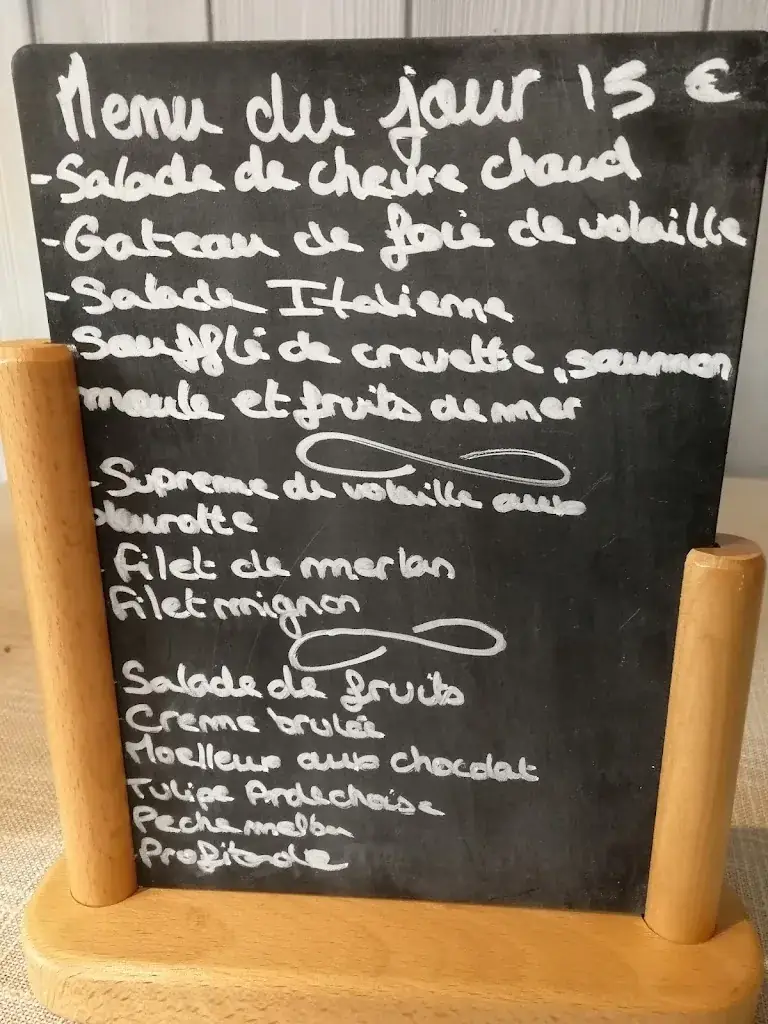 Menu du jour 15 €
-Salade de chevre chaud
-Gateau de foie de volaille
-Salade Italienne
-Soufflé de crevette, saumon
moule et fruits de mer
-Supreme de volaille aux
pleurotte
-Filet de merlan
Filet mignon
Salade de fruits
Creme brulée
Moelleux aux chocolat
Tulipe Ardechoise
Peche melba
Profiterole